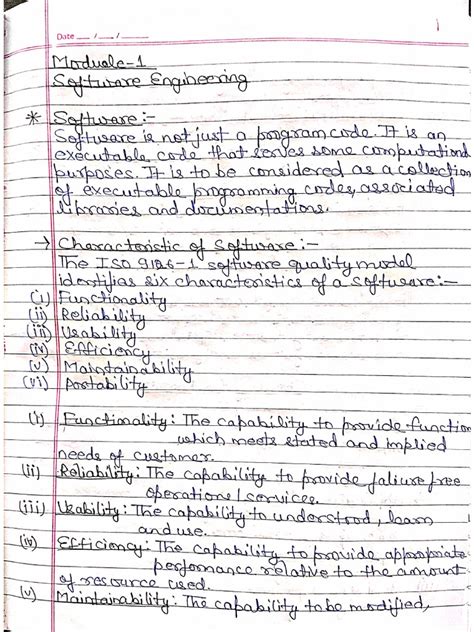 1
Date __/__/__
Module-1
Software Engineering
* Software:-
Software is not just a program code. It is an
executable code that serves some computational
purposes. It is to be considered as a collection
of executable programming codes, associated
libraries and documentations.
→ Characteristic of Software:-
The ISO 9126-1 software quality model
identifies six characteristics of a software:-
(i) Functionality
(ii) Reliability
(iii) Usability
(iv) Efficiency
(v) Maintainability
(vi) Portability
(i) Functionality: The capability to provide function
which meets stated and implied
needs of customer.
(ii) Reliability: The capability to provide faliure free
operations/services.
(iii) Usability: The capability to understood, learn
and use.
(iv) Efficiency: The capability to provide appropriate
performance relative to the amount
of resource used.
(v) Maintainability: The capability to be modified,